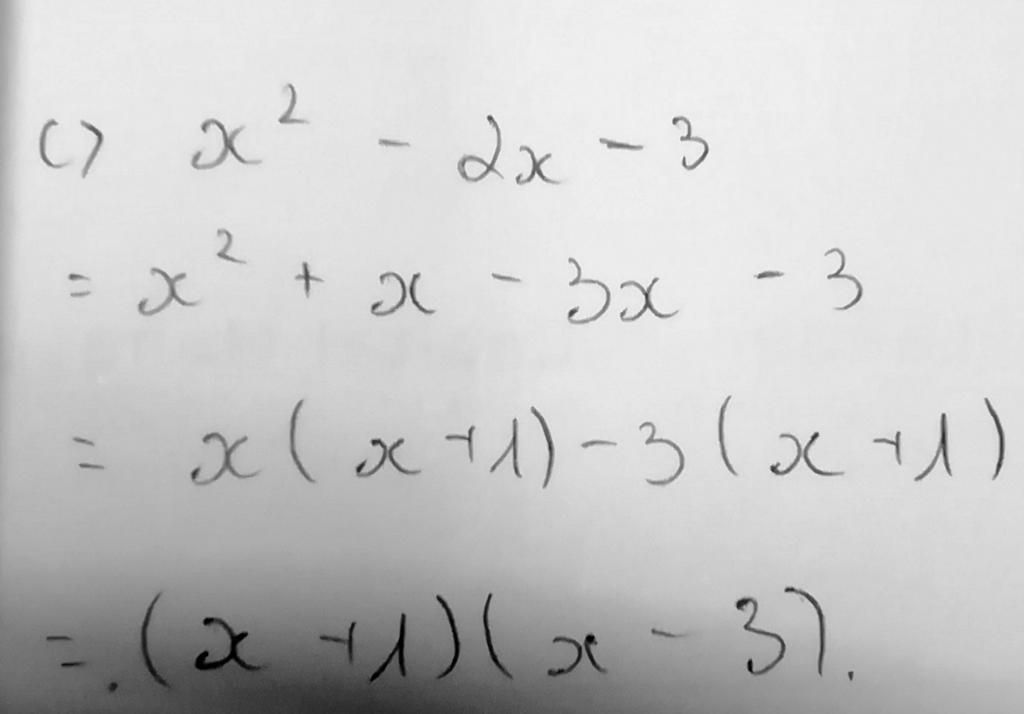 c) x² - 2x - 3
= x² + x - 3x - 3
= x(x+1) - 3(x+1)
= (x+1)(x-3).